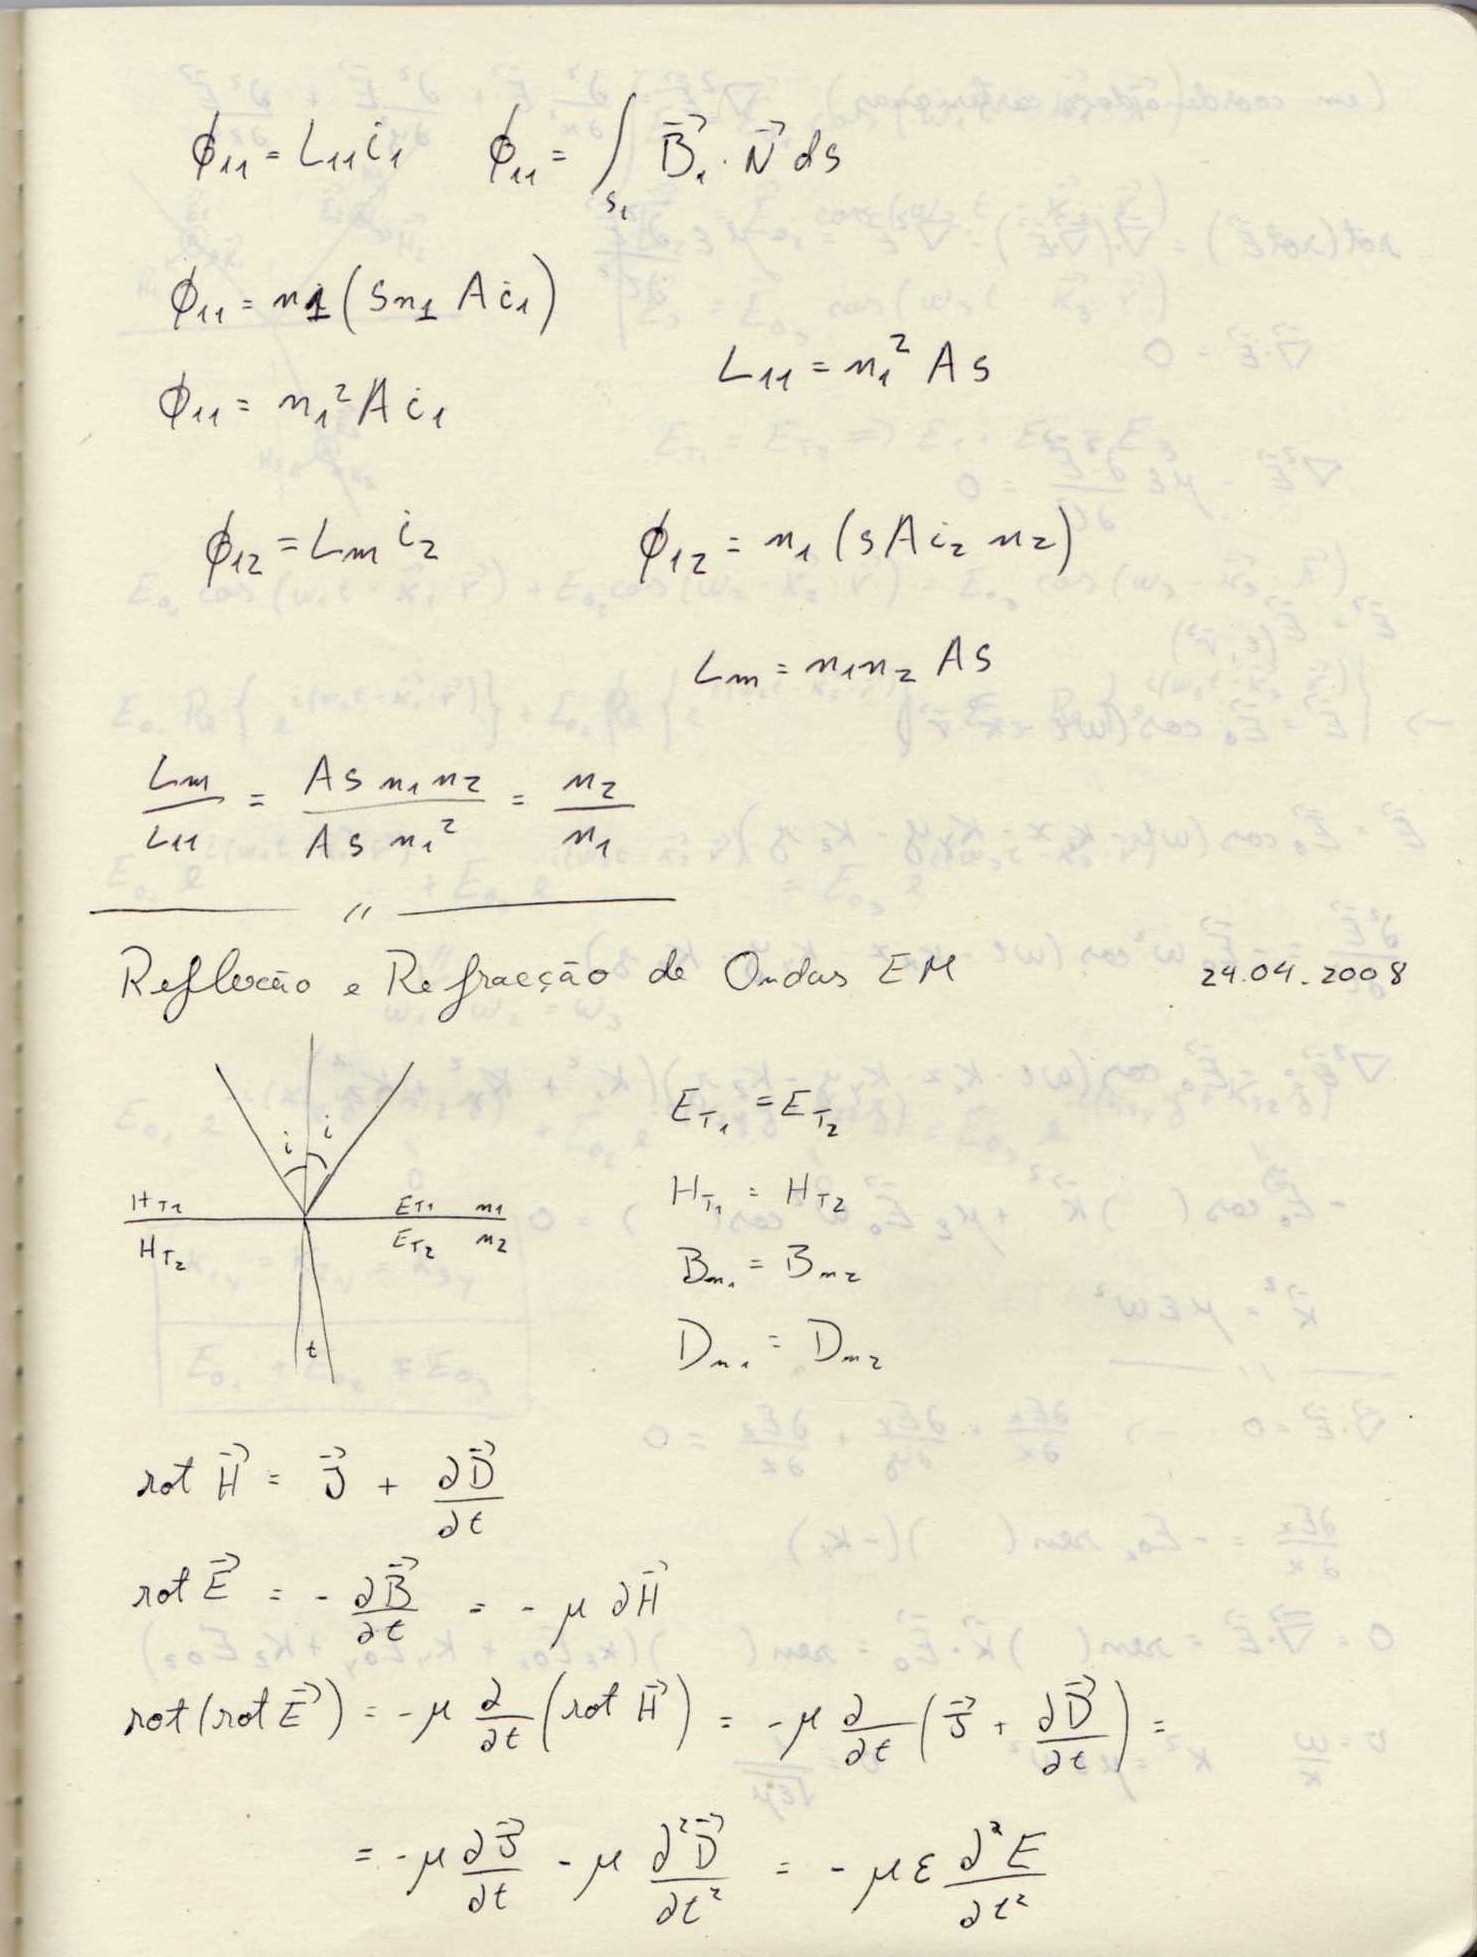 ϕ₁₁ = L₁₁ i₁    ϕ₁₁ = ∫_S₁ B⃗₁ · N⃗ ds
ϕ₁₁ = n₁ (s n₁ A i₁)
L₁₁ = n₁² A s
ϕ₁₁ = n₁² A i₁
ϕ₁₂ = Lm i₂    ϕ₁₂ = n₁ (s A i₂ n₂)
Lm = n₁ n₂ A s
Lm/L₁₁ = A s n₁ n₂ / A s n₁² = n₂/n₁
"
Reflexão e Refracção de Ondas EM    24.04.2008
i i
E_T₁ = E_T₂
H_T1    E_T1 n1
H_T2    E_T2 n2
H_T₁ = H_T2
B_n₁ = B_n2
t
D_n₁ = D_n2
rot H⃗ = J⃗ + ∂D⃗/∂t
rot E⃗ = - ∂B⃗/∂t = - μ ∂H⃗
rot (rot E⃗) = -μ ∂/∂t (rot H⃗) = -μ ∂/∂t (J⃗ + ∂D⃗/∂t) =
= -μ ∂J⃗/∂t - μ ∂²D⃗/∂t² = - μ ε ∂²E/∂t²